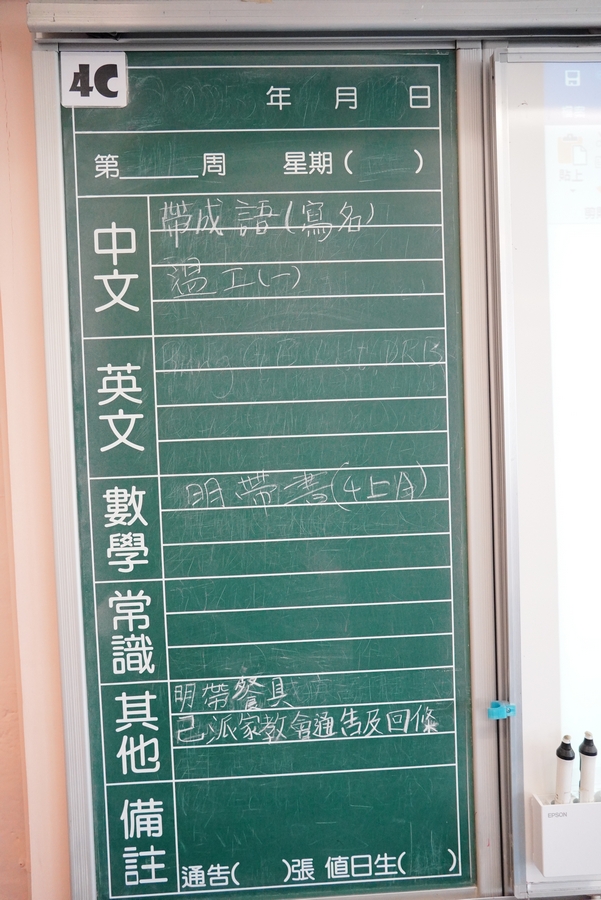 4C
年 月 日
第______周 星期( )
中文
帶成語(寫名)
溫工(一)
英文
數學
明帶書(4上A)
常識
其他
明帶餐具
已派家教會通告及回條
備註
通告( )張 值日生( )
日
EPSON